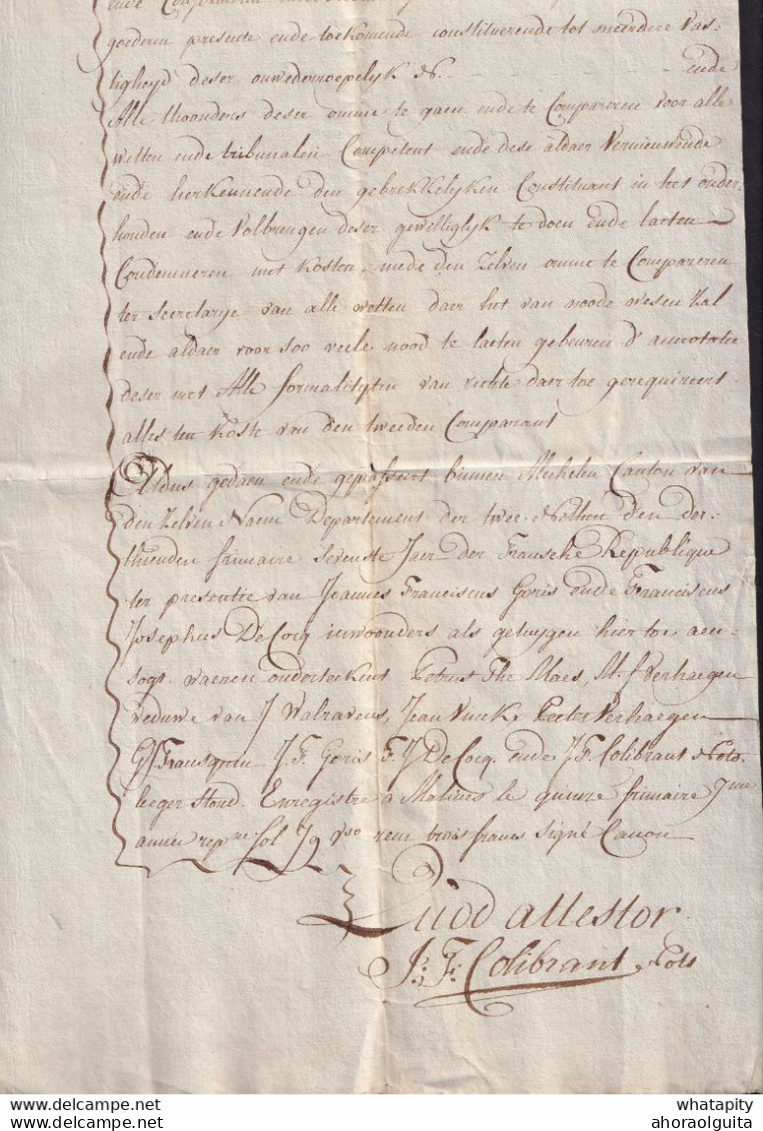 goederen presente ende toekomende constituerende tot meerdere vas-
tigheyd deser onwederroepelyk &c. - - - ende
Alle thoonders deser omme te gaen ende te Compareren voor alle
wetten ende tribunalen Competent ende dese aldaer Vernieuwende
ende herkennende den gebrekkelyken Constituant in het onder-
houden ende Volbrengen deser gewilliglyk te doen ende laeten
Condemneren met Kosten, mede den Zelven omme te Compareren
ter Secretarye van alle wetten daer het van noode wesen Zal
ende aldaer voor soo veele nood te laeten gebeuren d'annotatie
deser met Alle formalityten van rechte daer toe gerequireert
alles ten Koste van den tweeden Comparant
Aldus gedaen ende gepasseert binnen Mechelen Canton van
den Zelven Naem Departement der twee Nethen den der-
thienden frimaire Sevenste Jaer der Fransche Republique
ter presentie van Joannes Franciscus Goris ende Franciscus
Josephus DeCocq inwoonders als getuygen hier toe aen-
sogt. waeren onderteekent Petrus The Maes, M. f Verhaegen
weduwe van J Walravens, Jean Vinckx Peeter Verhaegen
J. F. Goris F. J DeCocq. ende J. F. Colibrant Nots.
leeger Stond. Enregistré a Malines le quinze frimaire 7me
année repne fol 79 vso reçu trois francs Signé Canon
Quod attestor
J: F: Colibrant Nots
delcampe.net
whatapity
ahoraolguita